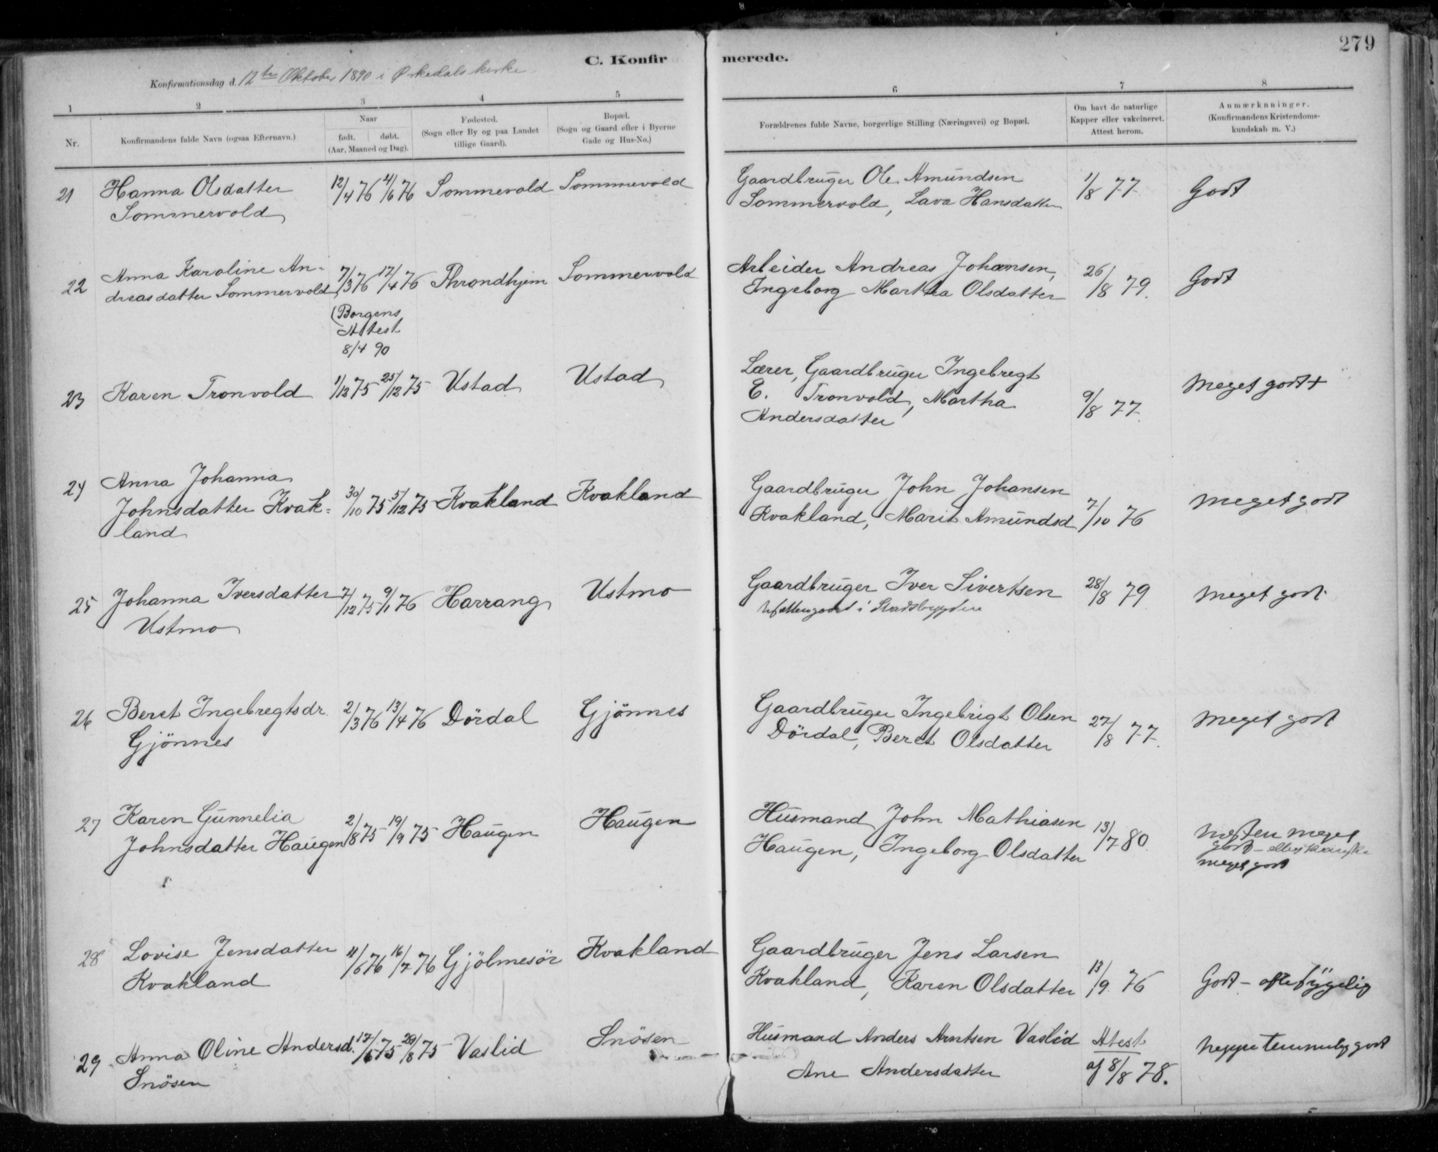 279
C. Konfirmerede.
Konfirmationsdag d. 12te Oktober 1890 i Ørkedals kirke
1 2 3 4 5 6 7 8
Nr.
Konfirmandens fulde Navn (ogsaa Efternavn.)
Naar
født. døbt.
(Aar, Maaned og Dag).
Fødested.
(Sogn eller By og paa Landet
tillige Gaard).
Bopæl.
(Sogn og Gaard eller i Byerne
Gade og Hus-No.)
Forældrenes fulde Navne, borgerlige Stilling (Næringsvei) og Bopæl.
Om havt de naturlige
Kopper eller vakcineret.
Attest herom.
Anmærkninger.
(Konfirmandens Kristendoms-
kundskab m. V.)
21 Hanna Olsdatter 12/4 76 4/6 76 Sommervold Sommervold Gaardbruger Ole Amundsen 1/8 77 Godt
Sommervold Sommervold, Lava Hansdatter
22 Anna Karoline An- 7/3 76 17/4 76 Throndhjem Sommervold Arbeider Andreas Johansen, 26/8 79. Godt
dreasdatter Sommervold Ingeborg Martha Olsdatter
(Borgens
Attest
8/4 90
23 Karen Tronvold 1/12 75 25/12 75 Ustad Ustad Lærer, Gaardbruger Ingebregt 9/8 77 Meget godt +
E. Tronvold, Martha
Andersdatter
24 Anna Johanna 30/10 75 5/12 75 Kvakland Kvakland Gaardbruger John Johansen 7/10 76 Meget godt
Johnsdatter Kvak- Kvakland, Marit Amundsd
land
25 Johanna Iversdatter 7/12 75 9/1 76 Harrang Ustmo Gaardbruger Iver Sivertsen 28/8 79 Meget godt
Ustmo i Stadsbygden
26 Beret Ingebregtsdr 2/3 76 13/4 76 Dördal Gjönnes Gaardbruger Ingebrigt Olsen 27/8 77. Meget godt
Gjönnes Dördal, Beret Olsdatter
27 Karen Gunnelia 2/8 75 19/9 75 Haugen Haugen Husmand John Mathiasen 13/7 80 Næsten meget
Johnsdatter Haugen Haugen, Ingeborg Olsdatter godt –
meget godt
28 Lovise Jensdatter 11/5 76 16/7 76 Gjölmesör Kvakland Gaardbruger Jens Larsen 13/9 76 Godt –
Kvakland Kvakland, Karen Olsdatter
29 Anna Oline Andersd. 17/5 75 29/8 75 Vaslid Snösen Husmand Anders Arntsen Vaslid Attest Neppe temmelig godt
Snösen Ane Andersdatter af 8/8 78.